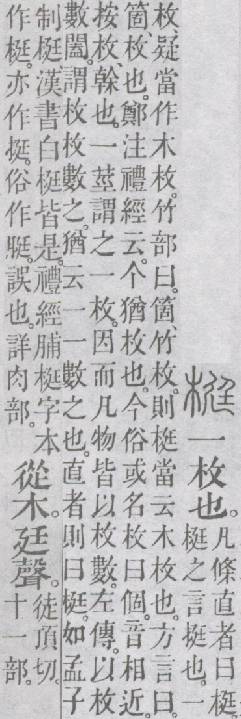 梃一枚也。
凡條直者曰梃
梃之言挺也。一
枚、疑當作木枚。竹部曰。箇、竹枚。則梃當云木枚也。方言曰。
箇、枚也。鄭注禮經云。个猶枚也。今俗或名枚曰個。音相近。
按枚、榦也。一莖謂之一枚。因而凡物皆以枚數。左傳以枚
數闔。謂枚枚數之。猶云一一數之也。直者則曰梃。如孟子
制梃漢書白梃皆是。禮經脯梃字本
作梃。亦作挺。俗作脡。誤也。詳肉部。
從木。廷聲。
徒頂切。
十一部。